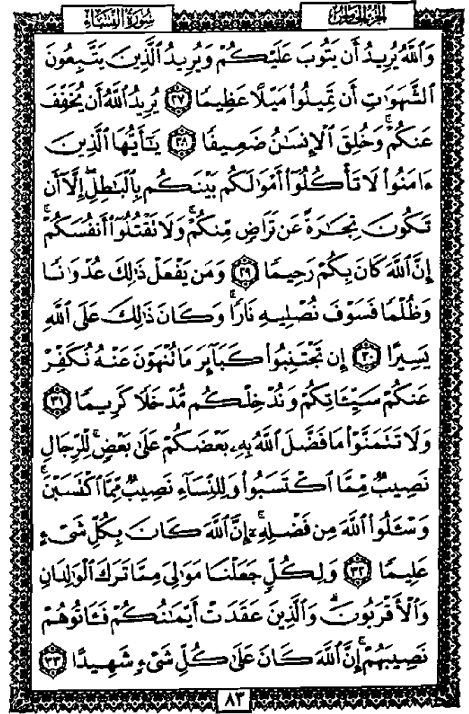 الجزء الخامس
سورة النساء
وَاللَّهُ يُرِيدُ أَن يَتُوبَ عَلَيْكُمْ وَيُرِيدُ الَّذِينَ يَتَّبِعُونَ
الشَّهَوَاتِ أَن تَمِيلُوا مَيْلًا عَظِيمًا ٢٧ يُرِيدُ اللَّهُ أَن يُخَفِّفَ
عَنكُمْ ۚ وَخُلِقَ الْإِنسَٰنُ ضَعِيفًا ٢٨ يَٰٓأَيُّهَا الَّذِينَ
ءَامَنُوا لَا تَأْكُلُوٓا أَمْوَٰلَكُم بَيْنَكُم بِالْبَٰطِلِ إِلَّآ أَن
تَكُونَ تِجَٰرَةً عَن تَرَاضٍ مِّنكُمْ ۚ وَلَا تَقْتُلُوٓا أَنفُسَكُمْ ۚ
إِنَّ اللَّهَ كَانَ بِكُمْ رَحِيمًا ٢٩ وَمَن يَفْعَلْ ذَٰلِكَ عُدْوَٰنًا
وَظُلْمًا فَسَوْفَ نُصْلِيهِ نَارًا ۚ وَكَانَ ذَٰلِكَ عَلَى اللَّهِ
يَسِيرًا ٣٠ إِن تَجْتَنِبُوا كَبَآئِرَ مَا تُنْهَوْنَ عَنْهُ نُكَفِّرْ
عَنكُمْ سَيِّـَٔاتِكُمْ وَنُدْخِلْكُم مُّدْخَلًا كَرِيمًا ٣١
وَلَا تَتَمَنَّوْا مَا فَضَّلَ اللَّهُ بِهِۦ بَعْضَكُمْ عَلَىٰ بَعْضٍ ۚ لِّلرِّجَالِ
نَصِيبٌ مِّمَّا اكْتَسَبُوا ۖ وَلِلنِّسَآءِ نَصِيبٌ مِّمَّا اكْتَسَبْنَ ۚ
وَسْـَٔلُوا اللَّهَ مِن فَضْلِهِۦٓ ۗ إِنَّ اللَّهَ كَانَ بِكُلِّ شَىْءٍ
عَلِيمًا ٣٢ وَلِكُلٍّ جَعَلْنَا مَوَٰلِىَ مِمَّا تَرَكَ الْوَٰلِدَانِ
وَالْأَقْرَبُونَ ۚ وَالَّذِينَ عَقَدَتْ أَيْمَٰنُكُمْ فَـَٔاتُوهُمْ
نَصِيبَهُمْ ۚ إِنَّ اللَّهَ كَانَ عَلَىٰ كُلِّ شَىْءٍ شَهِيدًا ٣٣
٨٣